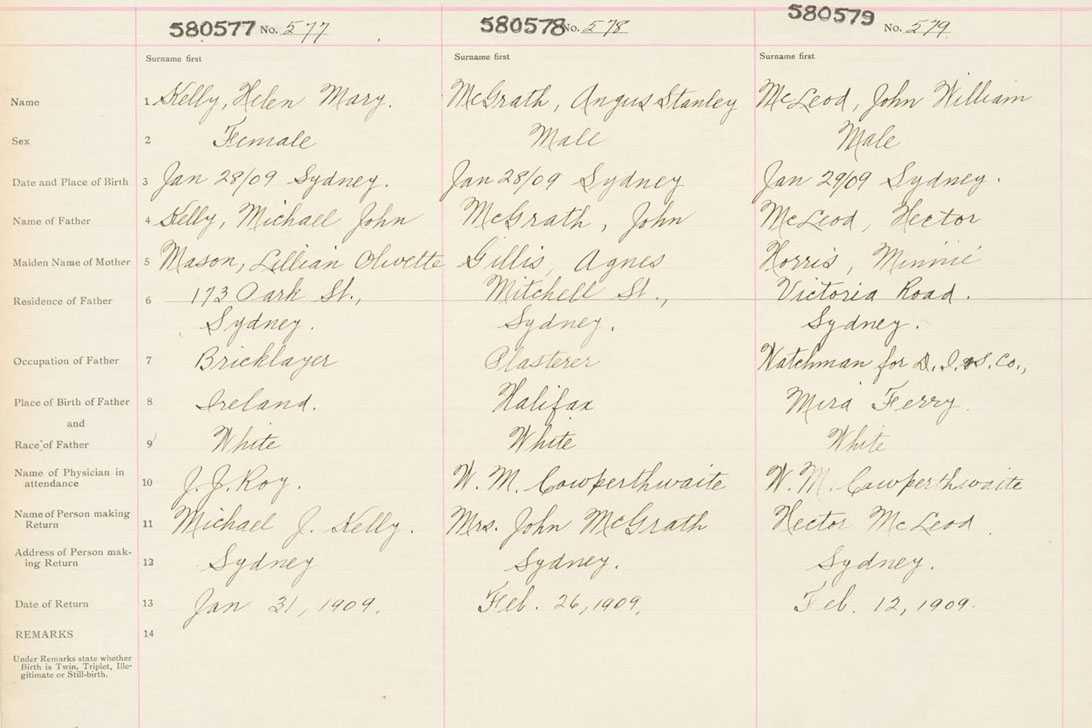 580577 No. 577 580578 No. 578 580579 No. 579
Surname first Surname first Surname first
Name 1 Kelly, Helen Mary. McGrath, Angus Stanley McLeod, John William
Sex 2 Female Male Male
Date and Place of Birth 3 Jan 28/09 Sydney. Jan 28/09 Sydney Jan 29/09 Sydney.
Name of Father 4 Kelly, Michael John McGrath, John McLeod, Hector
Maiden Name of Mother 5 Mason, Lillian Olivette Gillis, Agnes Morris, Minnie
Residence of Father 6 173 Park St., Mitchell St., Victoria Road.
Sydney. Sydney. Sydney.
Occupation of Father 7 Bricklayer Plasterer Watchman for D. I. & S. Co.,
Place of Birth of Father 8 Ireland. Halifax Mira Ferry.
and
Race of Father 9 White White White
Name of Physician in
attendance 10 J. J. Roy. W. M. Cowperthwaite W. M. Cowperthwaite
Name of Person making
Return 11 Michael J. Kelly. Mrs. John McGrath Hector McLeod
Address of Person mak-
ing Return 12 Sydney Sydney. Sydney.
Date of Return 13 Jan 31, 1909. Feb. 26, 1909. Feb. 12, 1909.
REMARKS 14
Under Remarks state whether
Birth is Twin, Triplet, Ille-
gitimate or Still-birth.